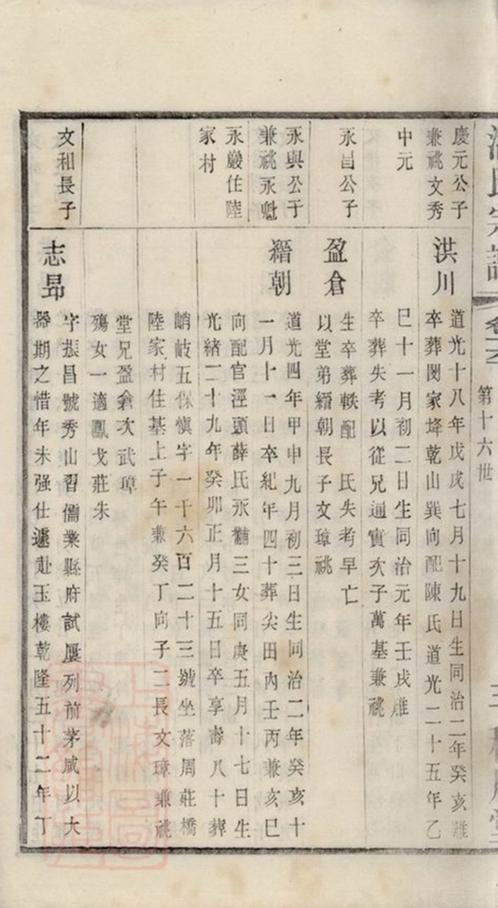 氏宗譜
卷六
第十六世
慶元公子
兼祧文秀
中元
洪川
道光十八年戊戌七月十九日生同治二年癸亥離
卒葬閔家埄乾山巽向配陳氏道光二十五年乙
巳十一月初二日生同治元年壬戌離
卒葬失考以從兄通實次子萬基兼祧
永昌公子
盈倉
生卒葬軼配 氏失考早亡
以堂弟縉朝長子文璋祧
永興公子
兼祧永魁
縉朝
道光四年甲申九月初三日生同治二年癸亥十
一月十一日卒紀年四十葬尖田內壬丙兼亥巳
向配官涇頭薛氏永 三女同庚五月十七日生
光緒二十九年癸卯正月十五日卒享壽八十葬
永嚴住陸
家村
峭岐五保慎字一千六百二十三號坐落周莊橋
陸家村住基上子午兼癸丁向子二長文璋兼祧
堂兄盈倉次武璋
殤女一適鳳戈莊朱
文和長子
志昂
字振昌號秀山習儒業縣府試屢列前茅咸以大
器期之惜年未强仕遽赴玉樓乾隆五十二年丁